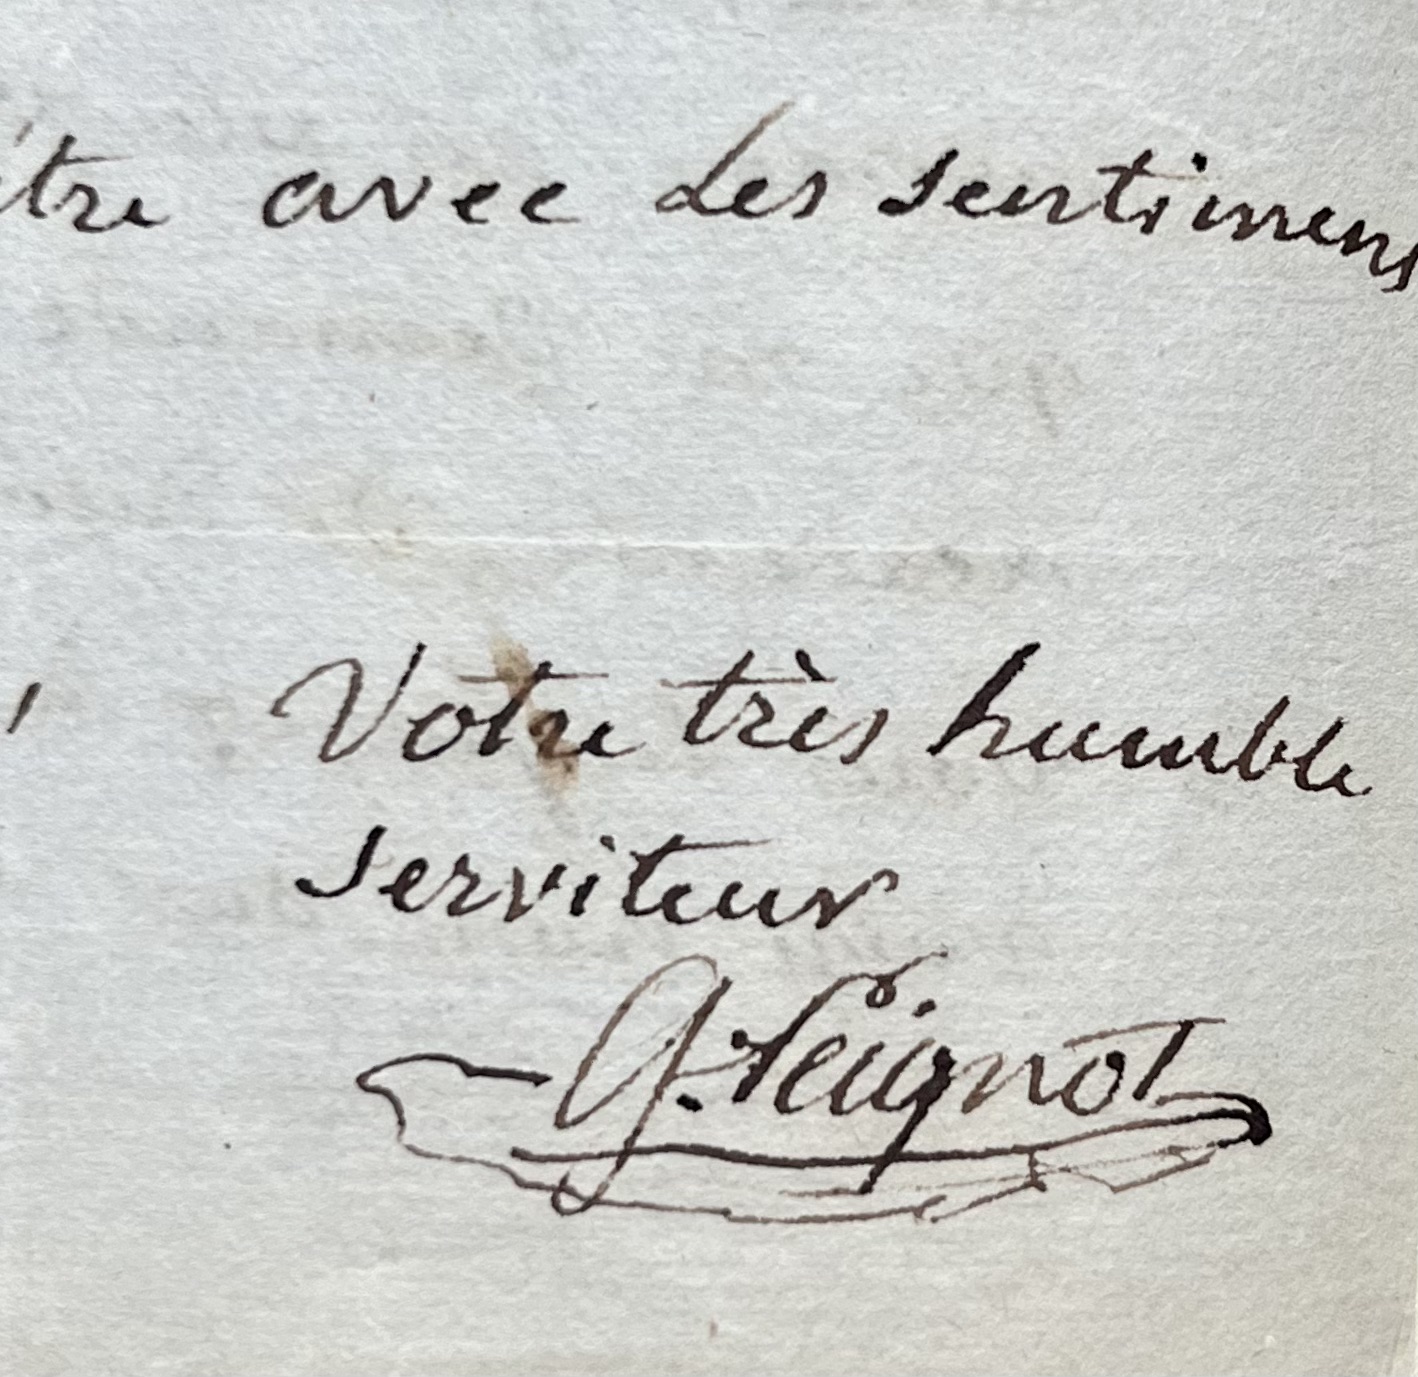 être avec des sentimens
Votre très humble
serviteur
G. Peignot